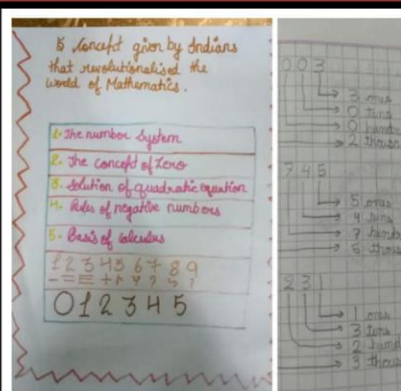 5 Concept given by Indians
that revolutionalised the
world of Mathematics.
1. The number System
2. The concept of Zero
3. Solution of quadratic equation
4. Rules of negative numbers
5. Basis of calculus
1 2 3 4 5 6 7 8 9
0 1 2 3 4 5
003
3 ones
0 tens
0
2 thousan
745
5 ones
4 tens
7
5 thous
231
1 ones
3 tens
2
3 thous